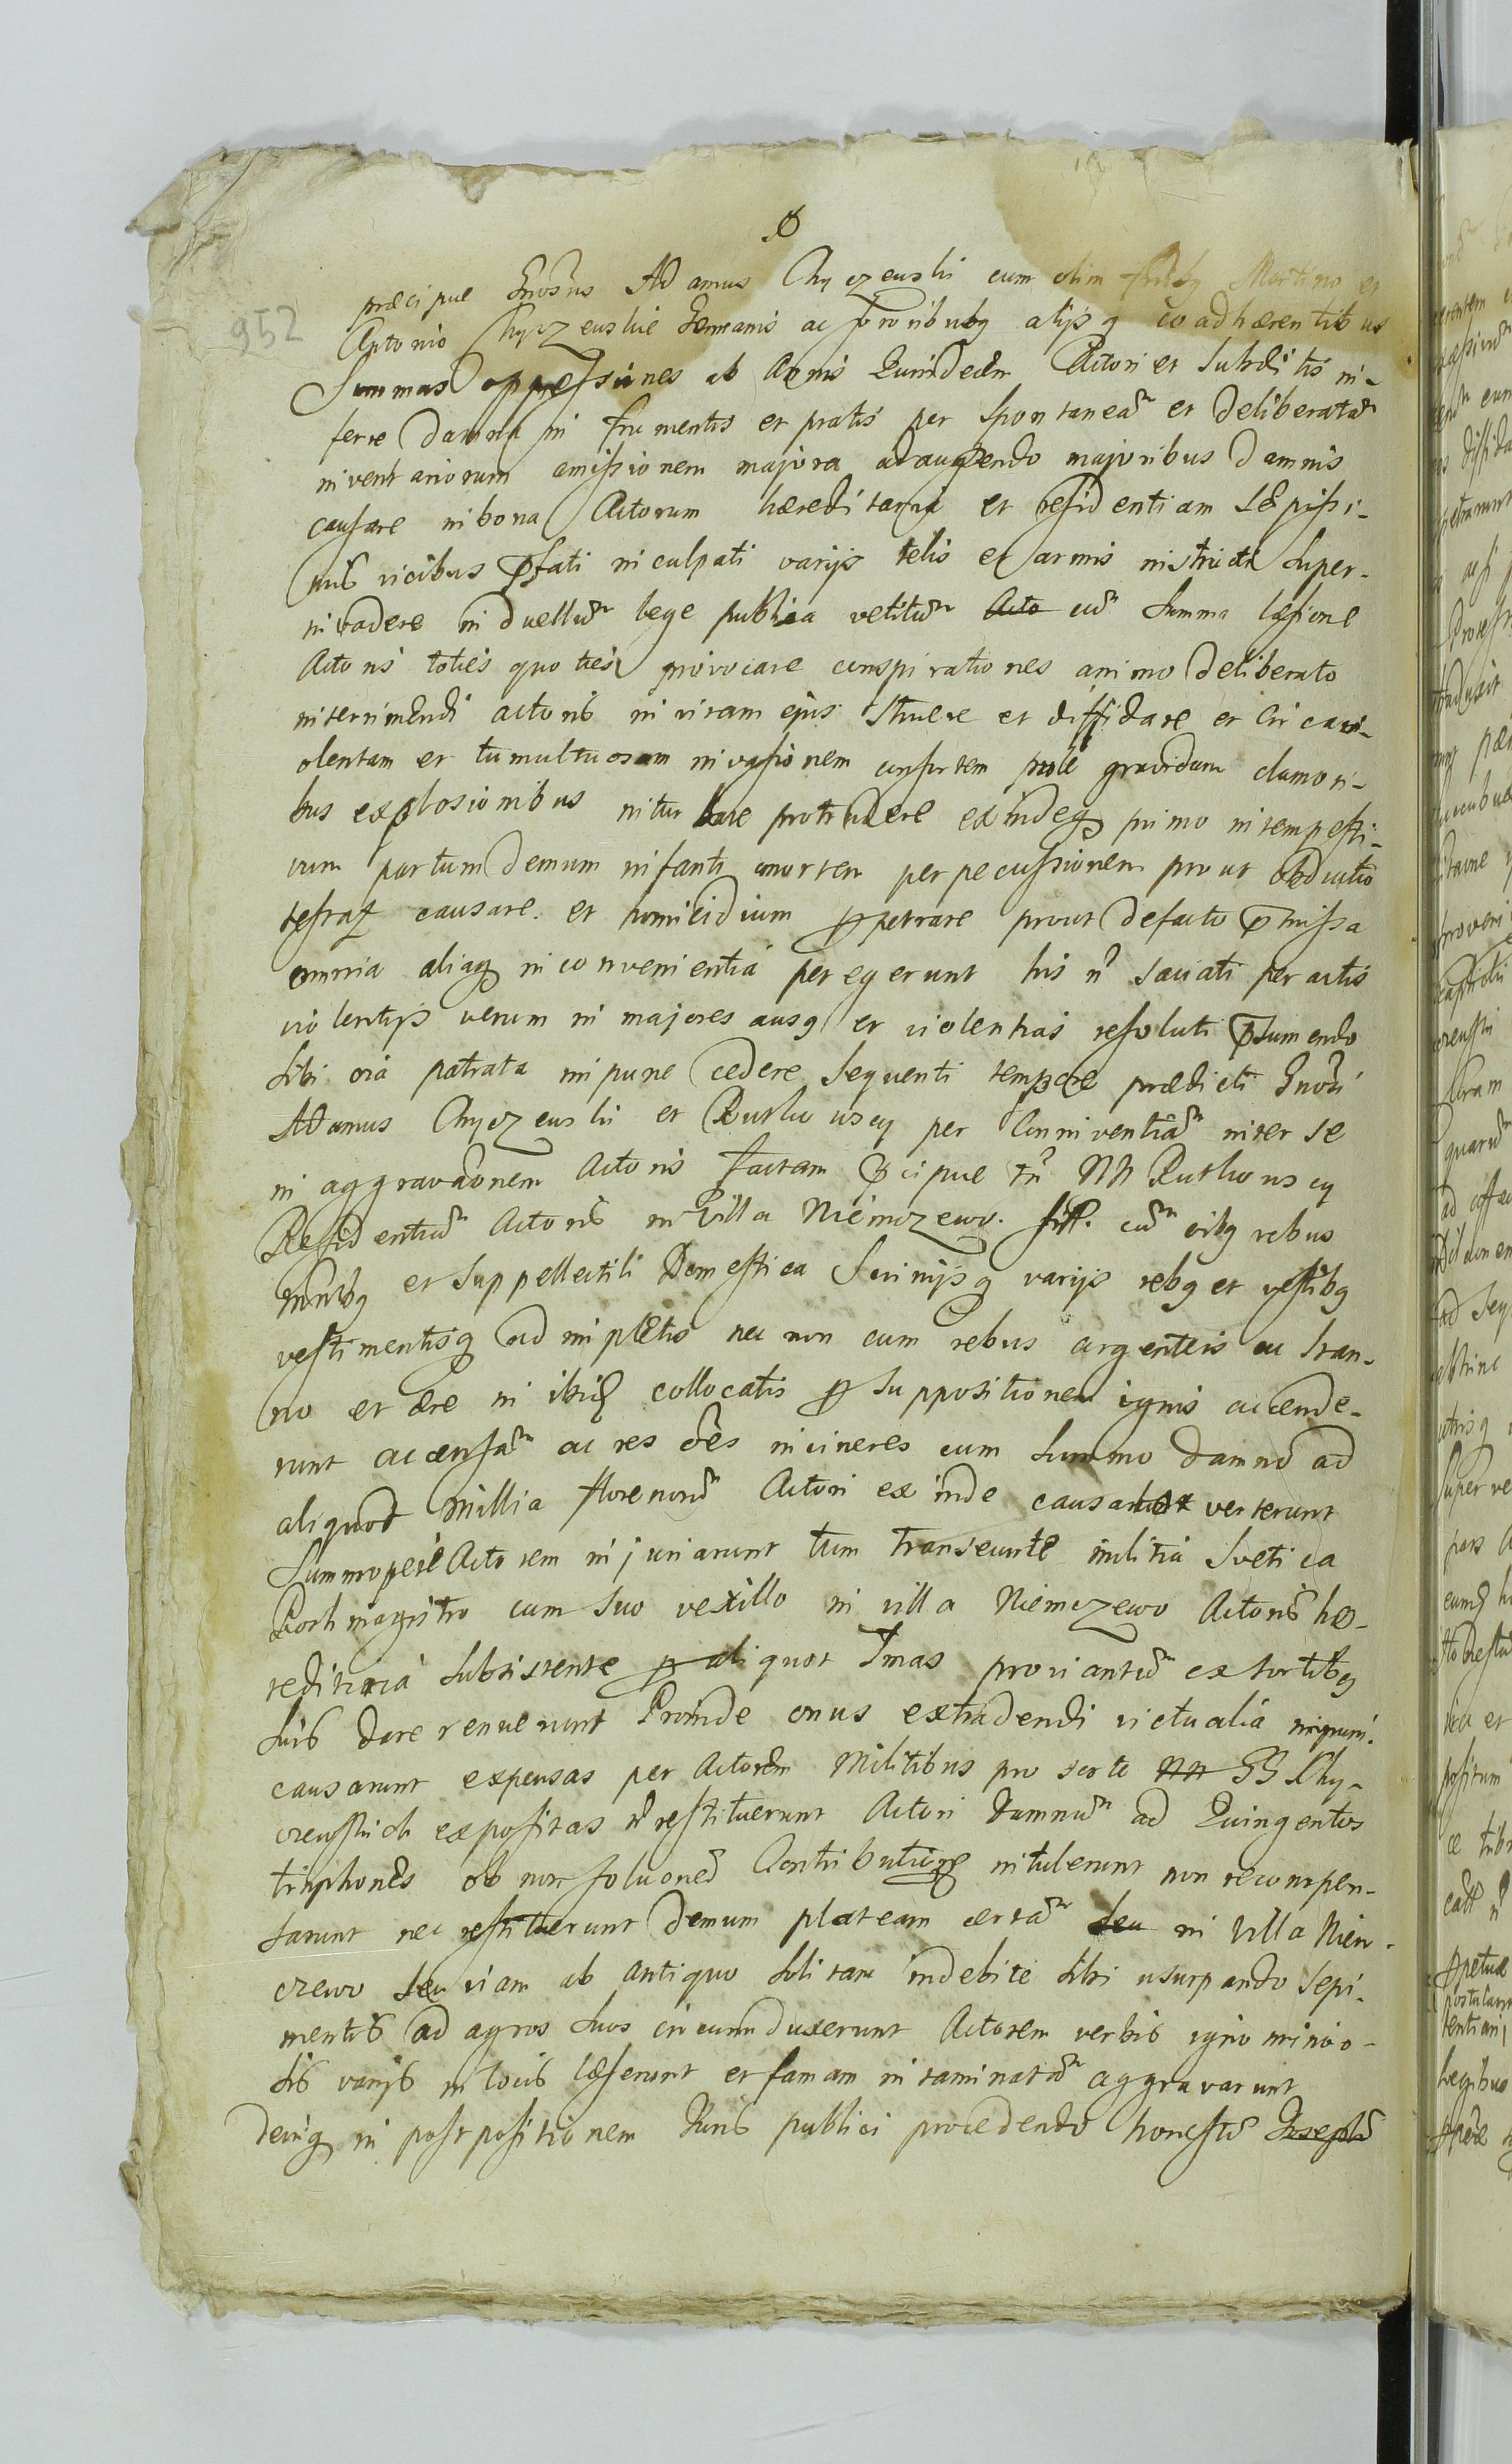 952
præcipue Gnosus Adamus Chyczewski cum olim frībꝫ Martino et
Antonio Chyczewskie Germanis ac sororibusq alijsq coadhærentibus
Summas oppressiones ab Annis Quindecim Actori et Subditis in-
ferre damna in frumentis et pratis per spontaneam̄ et deliberatam̄
inventariorum amissionem majora adaugendo majoribus damnis
causare in bona Actorum hæreditaria et residentiam sæpissi-
mis vicibus p̄fati inculpati varijs telis et armis instructi super-
invadere in duellum̄ lege publica vetitum̄ cum̄ summa læsione
Actoris toties quoties provocare conspirationes animo deliberato
interimendi actoris in vitam ejus struere et diffidare et circa vi-
olentam et tumultuosam invasionem consortem prole gravidam clamori-
bus explosionibus niturbare protrudere exindeq primo intempesti-
vum partum demum infanti mortem per percussionem prout obductio
testat causare et homicidium ꝑpetrare prout de facto p̄missa
omnia aliaq inconvenientia peregerunt his n̄ saciati peractis
violentijs verum in majores ausq et violentias resoluti p̄sumendo
sibi oīa patrata impune cedere sequenti tempore prædicti Gnosi
Adamus Chyczewski et Rutkowscy per conniventiam̄ inter se
in aggravāonem Actoris factam p̄cipue tn̄ NN Rutkowscy
Residentiam̄ Actoris in Villa Niemczewo sitt. cum̄ oībꝫ rebus
oīnibꝫ et suppellectili Domestica Scrinijsq varijs rebꝫ et vestibꝫ
vestimentisq adimpletis nec non cum rebus argenteis ac stan-
no et ære in ibidꝫ collocatis ꝑ suppositionem ignis accende-
runt accensam̄ ac res oēs in cineres cum summo damno ad
aliquod millia florenorum̄ Actori exinde verterunt
Summopere Actorem injuriarunt tum transeunte militia Svetica
Rochmagistro cum suo vexillo in villa Niemczewo Actoris hæ-
reditaria subsistente ꝑ aliquot Imas proviantum̄ ex sortibꝫ
suis dare renuerunt Proinde onus extradendi victualia
causarunt expensas per Actorem Militibus pro sorte GG Chy-
czewskich expositas n̄ restituerunt Actori damnum̄ ad Quingentos
timphones ob non soluonem̄ Contributione intulerunt non recompen-
sarunt nec restituerunt demum plateam certam̄ in villa Niem-
czewo seu viam ab antiquo solitam indebite sibi usurpando sepi-
mentis ad agros suos circumduxerunt Actorem verbis ignominio-
sis varijs in locis læserunt et famam intaminatam̄ aggravarunt
deinq in postpositionem Juris publici procedendo honestum̄